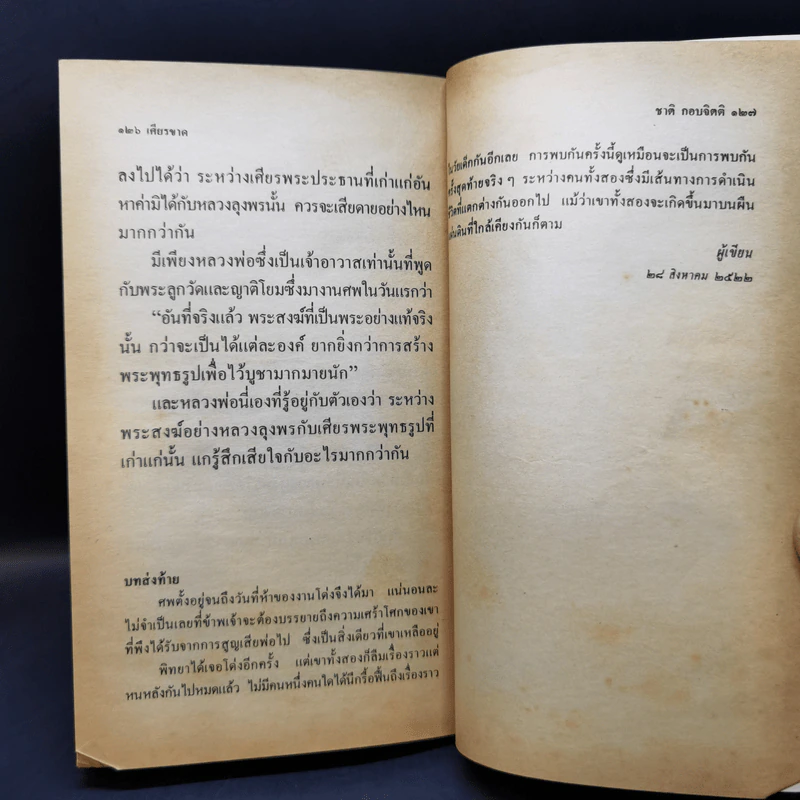 ๑๒๖ เศียรขาด
ลงไปได้ว่า ระหว่างเศียรพระประธานที่เก่าแก่อัน
หาค่ามิได้กับหลวงลุงพรนั้น ควรจะเสียดายอย่างไหน
มากกว่ากัน
มีเพียงหลวงพ่อซึ่งเป็นเจ้าอาวาสเท่านั้นที่พูด
กับพระลูกวัดและญาติโยมซึ่งมางานศพในวันแรกว่า
“อันที่จริงแล้ว พระสงฆ์ที่เป็นพระอย่างแท้จริง
นั้น กว่าจะเป็นได้แต่ละองค์ ยากยิ่งกว่าการสร้าง
พระพุทธรูปเพื่อไว้บูชามากมายนัก”
และหลวงพ่อนี่เองที่รู้อยู่กับตัวเองว่า ระหว่าง
พระสงฆ์อย่างหลวงลุงพรกับเศียรพระพุทธรูปที่
เก่าแก่นั้น แกรู้สึกเสียใจกับอะไรมากกว่ากัน
บทส่งท้าย
ศพตั้งอยู่จนถึงวันที่ห้าของงานโด่งจึงได้มา แน่นอนละ
ไม่จำเป็นเลยที่ข้าพเจ้าจะต้องบรรยายถึงความเศร้าโศกของเขา
ที่พึงได้รับจากการสูญเสียพ่อไป ซึ่งเป็นสิ่งเดียวที่เขาเหลืออยู่
พิทยาได้เจอโด่งอีกครั้ง แต่เขาทั้งสองก็ลืมเรื่องราวแต่
หนหลังกันไปหมดแล้ว ไม่มีคนหนึ่งคนใดได้นึกรื้อฟื้นถึงเรื่องราว
ชาติ กอบจิตติ ๑๒๗
ในวัยเด็กกันอีกเลย การพบกันครั้งนี้ดูเหมือนจะเป็นการพบกัน
ครั้งสุดท้ายจริง ๆ ระหว่างคนทั้งสองซึ่งมีเส้นทางการดำเนิน
ชีวิตที่แตกต่างกันออกไป แม้ว่าเขาทั้งสองจะเกิดขึ้นมาบนผืน
แผ่นดินที่ใกล้เคียงกันก็ตาม
ผู้เขียน
๒๘ สิงหาคม ๒๕๒๒